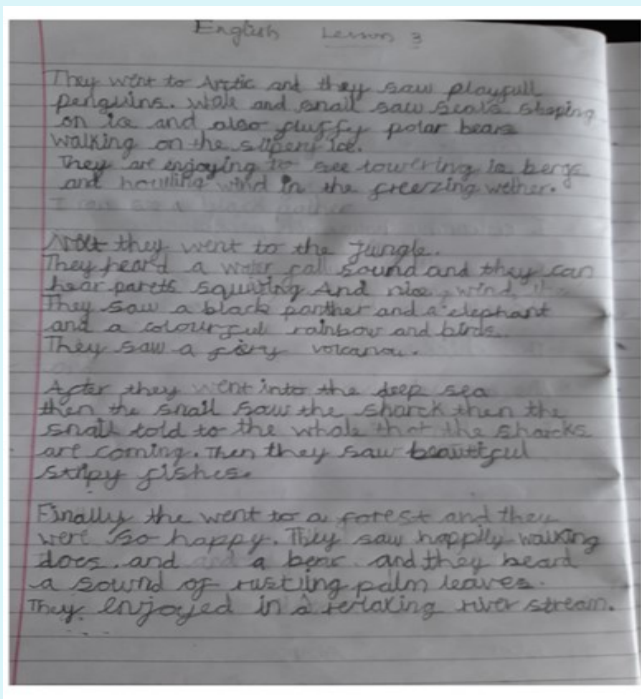 English Lesson 3
They went to Arctic and they saw playfull
penguins. Wale and snail saw seals sleping
on ice and also fluffy polar bears
walking on the slipery ice.
They are enjoying to see towering ice bergs
and howling wind in the freezing wether.
they went to the jungle.
They heard a water fall sound and they can
hear And nice wind
They saw a black panther and a elephant
and a colourful rainbow and birds.
They saw a firy
After they went into the deep sea
then the snail saw the sharck then the
snail told to the whale that the sharcks
are coming. Then they saw beautiful
stripy fishes.
Finally the went to a forest and they
were so happy. They saw happily walking
does and a bear and they heard
a sound of rustling palm leaves.
They enjoyed in a river stream.